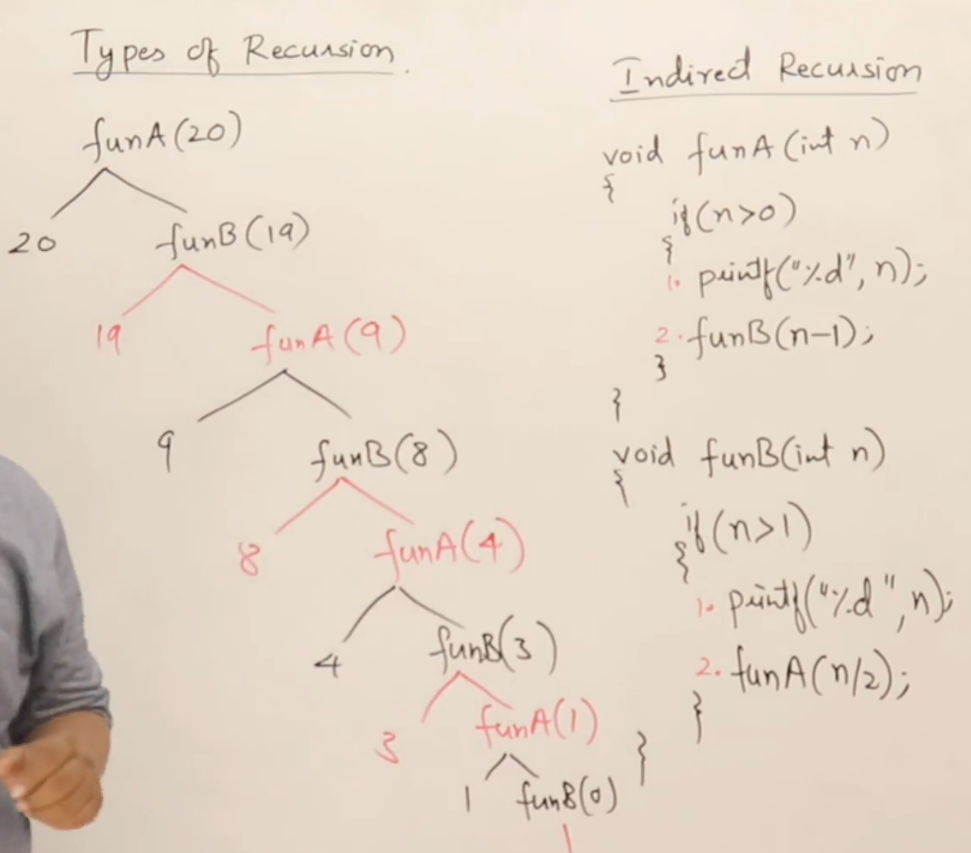 Types of Recursion.
funA(20)
20 funB(19)
19 funA(9)
9 funB(8)
8 funA(4)
4 funB(3)
3 funA(1)
1 funB(0)
Indirect Recursion
void funA(int n)
{
if(n>0)
{
1. printf("%d", n);
2. funB(n-1);
}
}
void funB(int n)
{
if(n>1)
{
1. printf("%d", n);
2. funA(n/2);
}
}